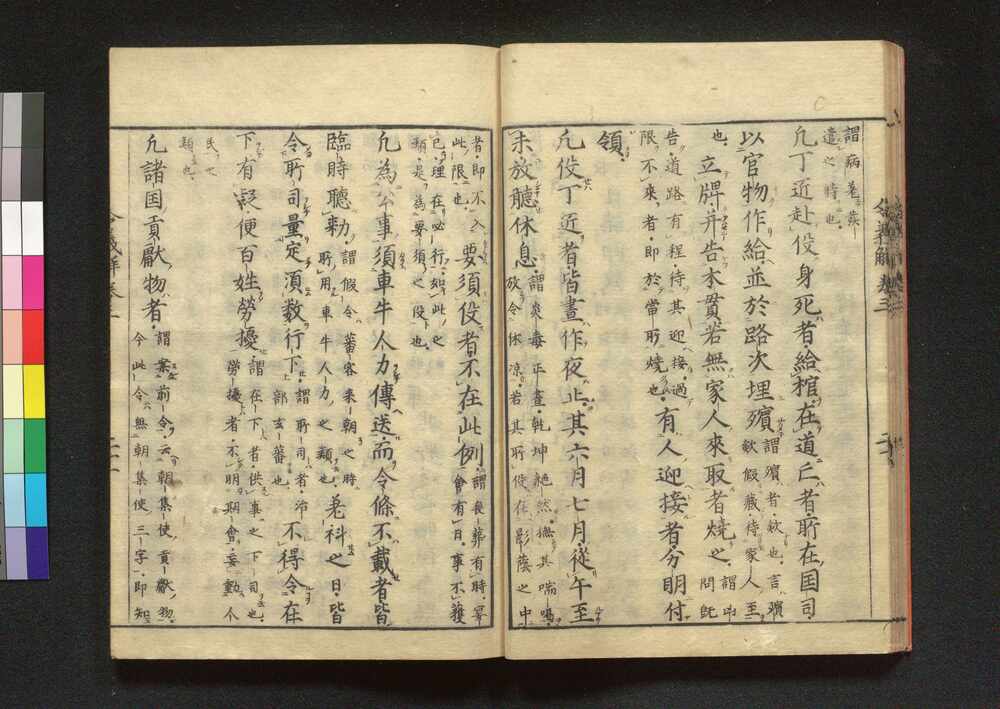 謂病差発
遣之時也
凡丁近赴役身死者給棺在道亡者所在国司
以官物作給並於路次埋殯
謂殯者欤也言殯
欤假蔵待家人至
也
立牌并告本貫若無家人来取者焼之
告道路有程待其迎接過
限不来者即於当所焼也
有人迎接者分明付
領
凡役丁近者皆昼作夜止其六月七月従午至
未放聴休息
謂炎毒正盛乾坤絶然撫其喘鳴
放令休涼若其所役在影蔭之中
者即不入
此限也
要須役者不在此例
謂喪葬有時冥
会有日事不獲
已理在必行如此之
類是為要須之役也
凡為公事須車牛人力伝送而令條不載者皆
臨時聴勅
謂假令蕃客来朝之時
所用車牛人力之類也
差科之日皆
令所司量定須数行下
謂所司者治
部玄蕃也
不得令在
下有疑便百姓労擾
謂在下者供事之下司也
労擾者不明期会妄動人
民之
類也
凡諸国貢献物者
謂案前令云朝集使貢献物
今此令無朝集使三字即知
令義解巻三